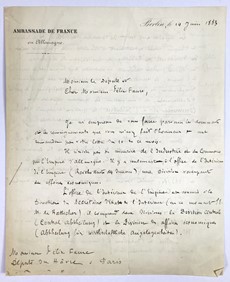 AMBASSADE DE FRANCE
en Allemagne
Berlin, le 19 Juin 1885
Monsieur le Député et
Cher Monsieur Félix Faure,
Je m'empresse de vous faire parvenir
les renseignements que vous m'avez fait l'honneur de me
demander par votre lettre du
Il n'existe pas de ministère de l'Industrie et du Commerce
pour l'Empire d'Allemagne. Il y a seulement à l'office de l'Intérieur
de l'Empire (Reichsamt des Innern) une Division
affaires économiques.
L'office de l'Intérieur de l'Empire est soumis à la
direction du Secrétaire d'Etat de l'Intérieur (en ce moment
M. de Bötticher) et comprend deux Divisions: la Division Centrale
(Central Abtheilung) et la Division des affaires économiques
(Abtheilung für wirthschaftliche Angelegenheiten).
Monsieur Félix Faure
Député du Havre à Paris